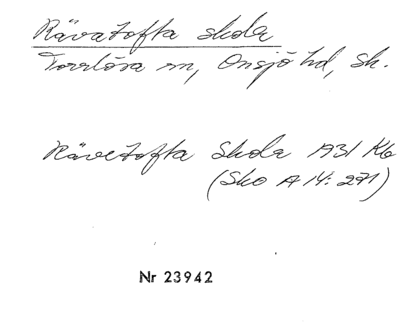 Rävatofta skola
Torrlösa sn, Onsjö hd, Sk.
Rävetofta Skola A31 Kb
(Sko A 14: 271)
Nr 23942